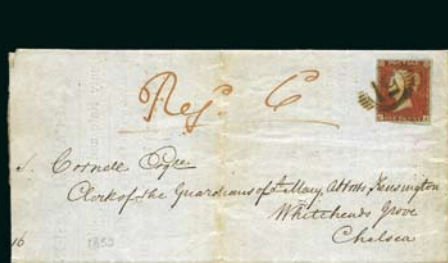 Reg. 6
S. Cornell Esqre
Clerk of the Guardians of St Mary Abbotts, Kensington
Whiteheads Grove
Chelsea
16 1850